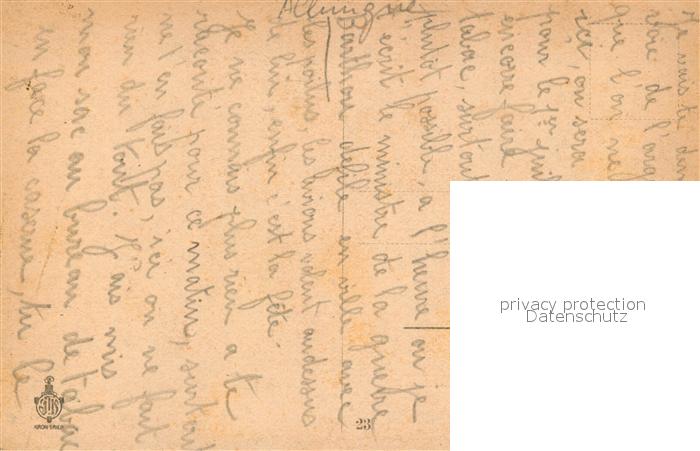 Allemagne
Je vais te
l'arg
que l'on ne
ici, on sera
pour le 1er juil
encore faire
tabac, surtout
plutôt possible, a l'heure ou je
t'écrit le ministre de la guerre
Barthou défile en ville avec
les poilus, les avions volent audessus
de lui, enfin c'est la fête.
Je ne connais plus rien a te
raconté pour ce matin, surtout
ne t'en fais pas, ici on ne fait
rien du tout. J'ais mis
mon sac au bureau de tabac
en face la caserne, tu le
23
privacy protection
Datenschutz